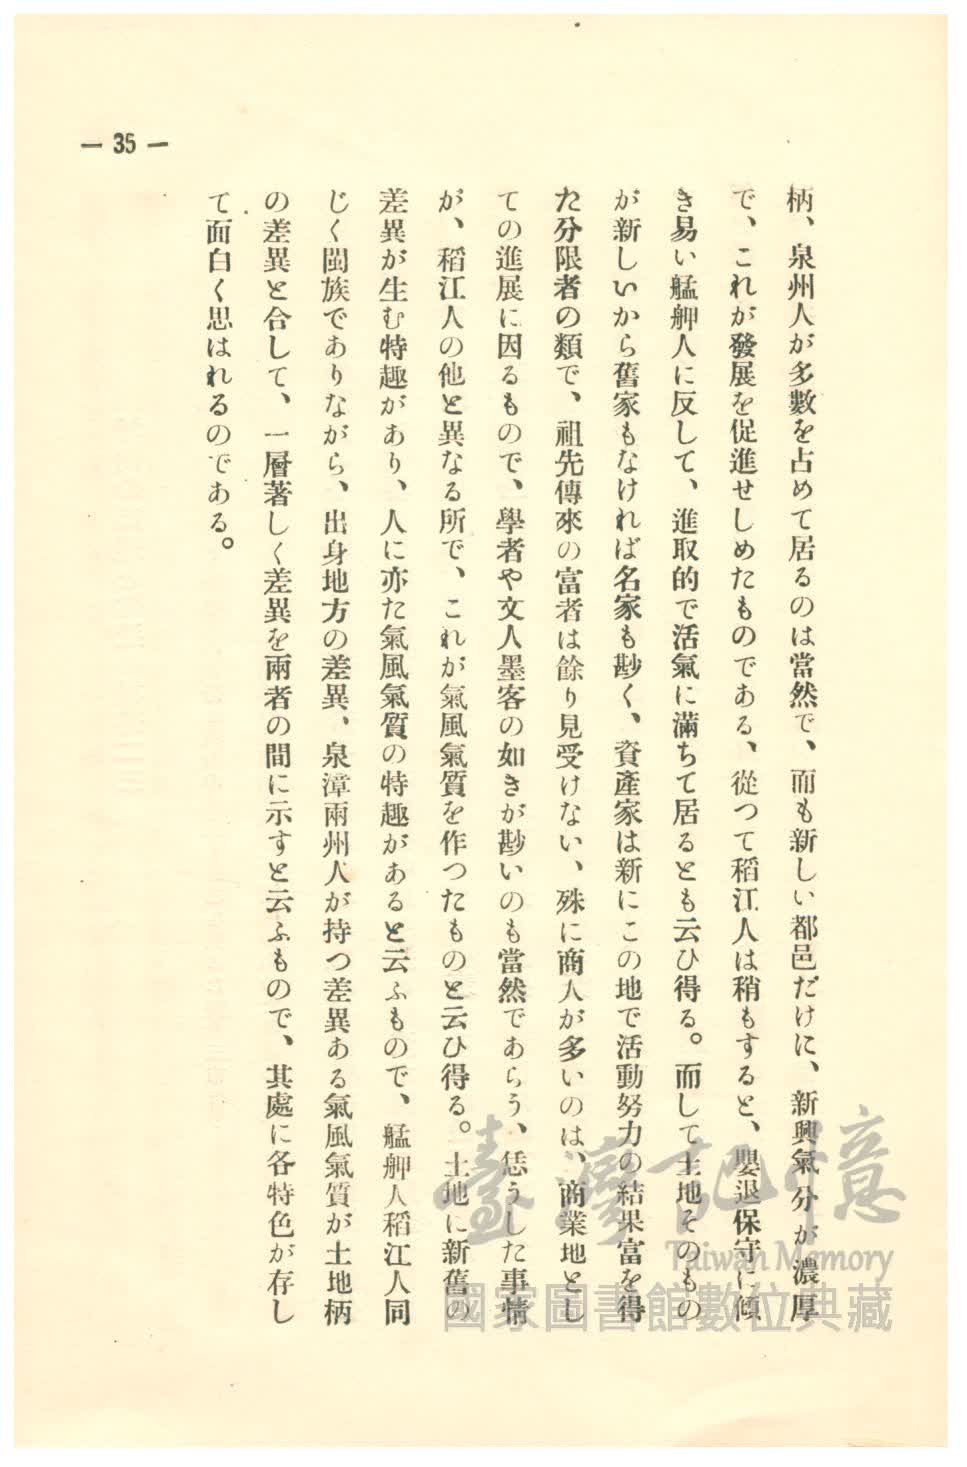 — 35 —
柄、泉州人が多數を占めて居るのは當然で、而も新しい都邑だけに、新興氣分が濃厚
で、これが發展を促進せしめたものである、從つて稻江人は稍もすると、嬰退保守に傾
き易い艋舺人に反して、進取的で活氣に滿ちて居るとも云ひ得る。而して土地そのもの
が新しいから舊家もなければ名家も尠く、資產家は新にこの地で活動努力の結果富を得
た分限者の類で、祖先傳來の富者は餘り見受けない、殊に商人が多いのは、商業地とし
ての進展に因るもので、學者や文人墨客の如きが尠いのも當然であらう、恁うした事情
が、稻江人の他と異なる所で、これが氣風氣質を作つたものと云ひ得る。土地に新舊の
差異が生む特趣があり、人に亦た氣風氣質の特趣があると云ふもので、艋舺人稻江人同
じく閩族でありながら、出身地方の差異、泉漳兩州人が持つ差異ある氣風氣質が土地柄
の差異と合して、一層著しく差異を兩者の間に示すと云ふもので、其處に各特色が存し
て面白く思はれるのである。
臺灣記憶
Taiwan Memory
國家圖書館數位典藏